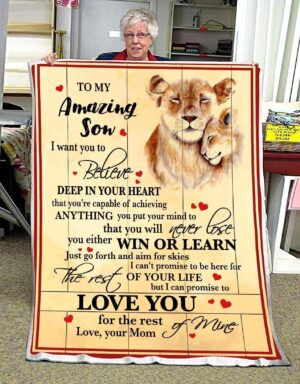 TO MY
Amazing
Son
I want you to
Believe
DEEP IN YOUR HEART
that you're capable of achieving
ANYTHING you put your mind to
that you will never lose
you either WIN OR LEARN
Just go forth and aim for skies
I can't promise to be here for
The rest OF YOUR LIFE
but I can promise to
LOVE YOU
for the rest of Mine
Love, your Mom